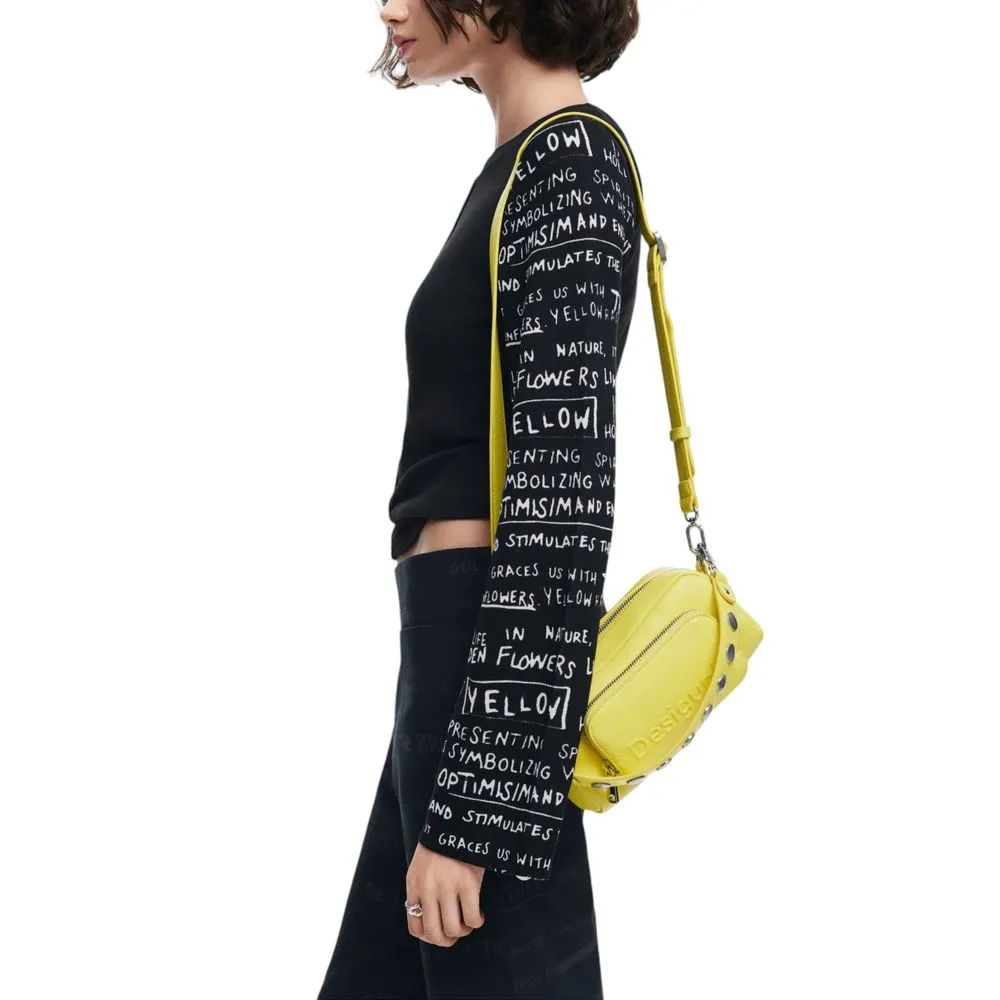 ELLOW
HOLD
ESENTING SPIRIT
SYMBOLIZING WHET
OPTIMISIM AND EN
AND STIMULATES THE
GRACES US WITH
YELLOW
IN NATURE, IT
FLOWERS LI
ELLOW
HO
SENTING SPI
MBOLIZING W
OPTIMISIM AND EN
STIMULATES TH
GRACES US WITH
LOWERS. YELLOW
LIFE IN NATURE,
DEN FLOWERS L
YELLOW
PRESENTING SP
SYMBOLIZING W
OPTIMISIM AND
AND STIMULATES
GRACES US WITH
Desigu